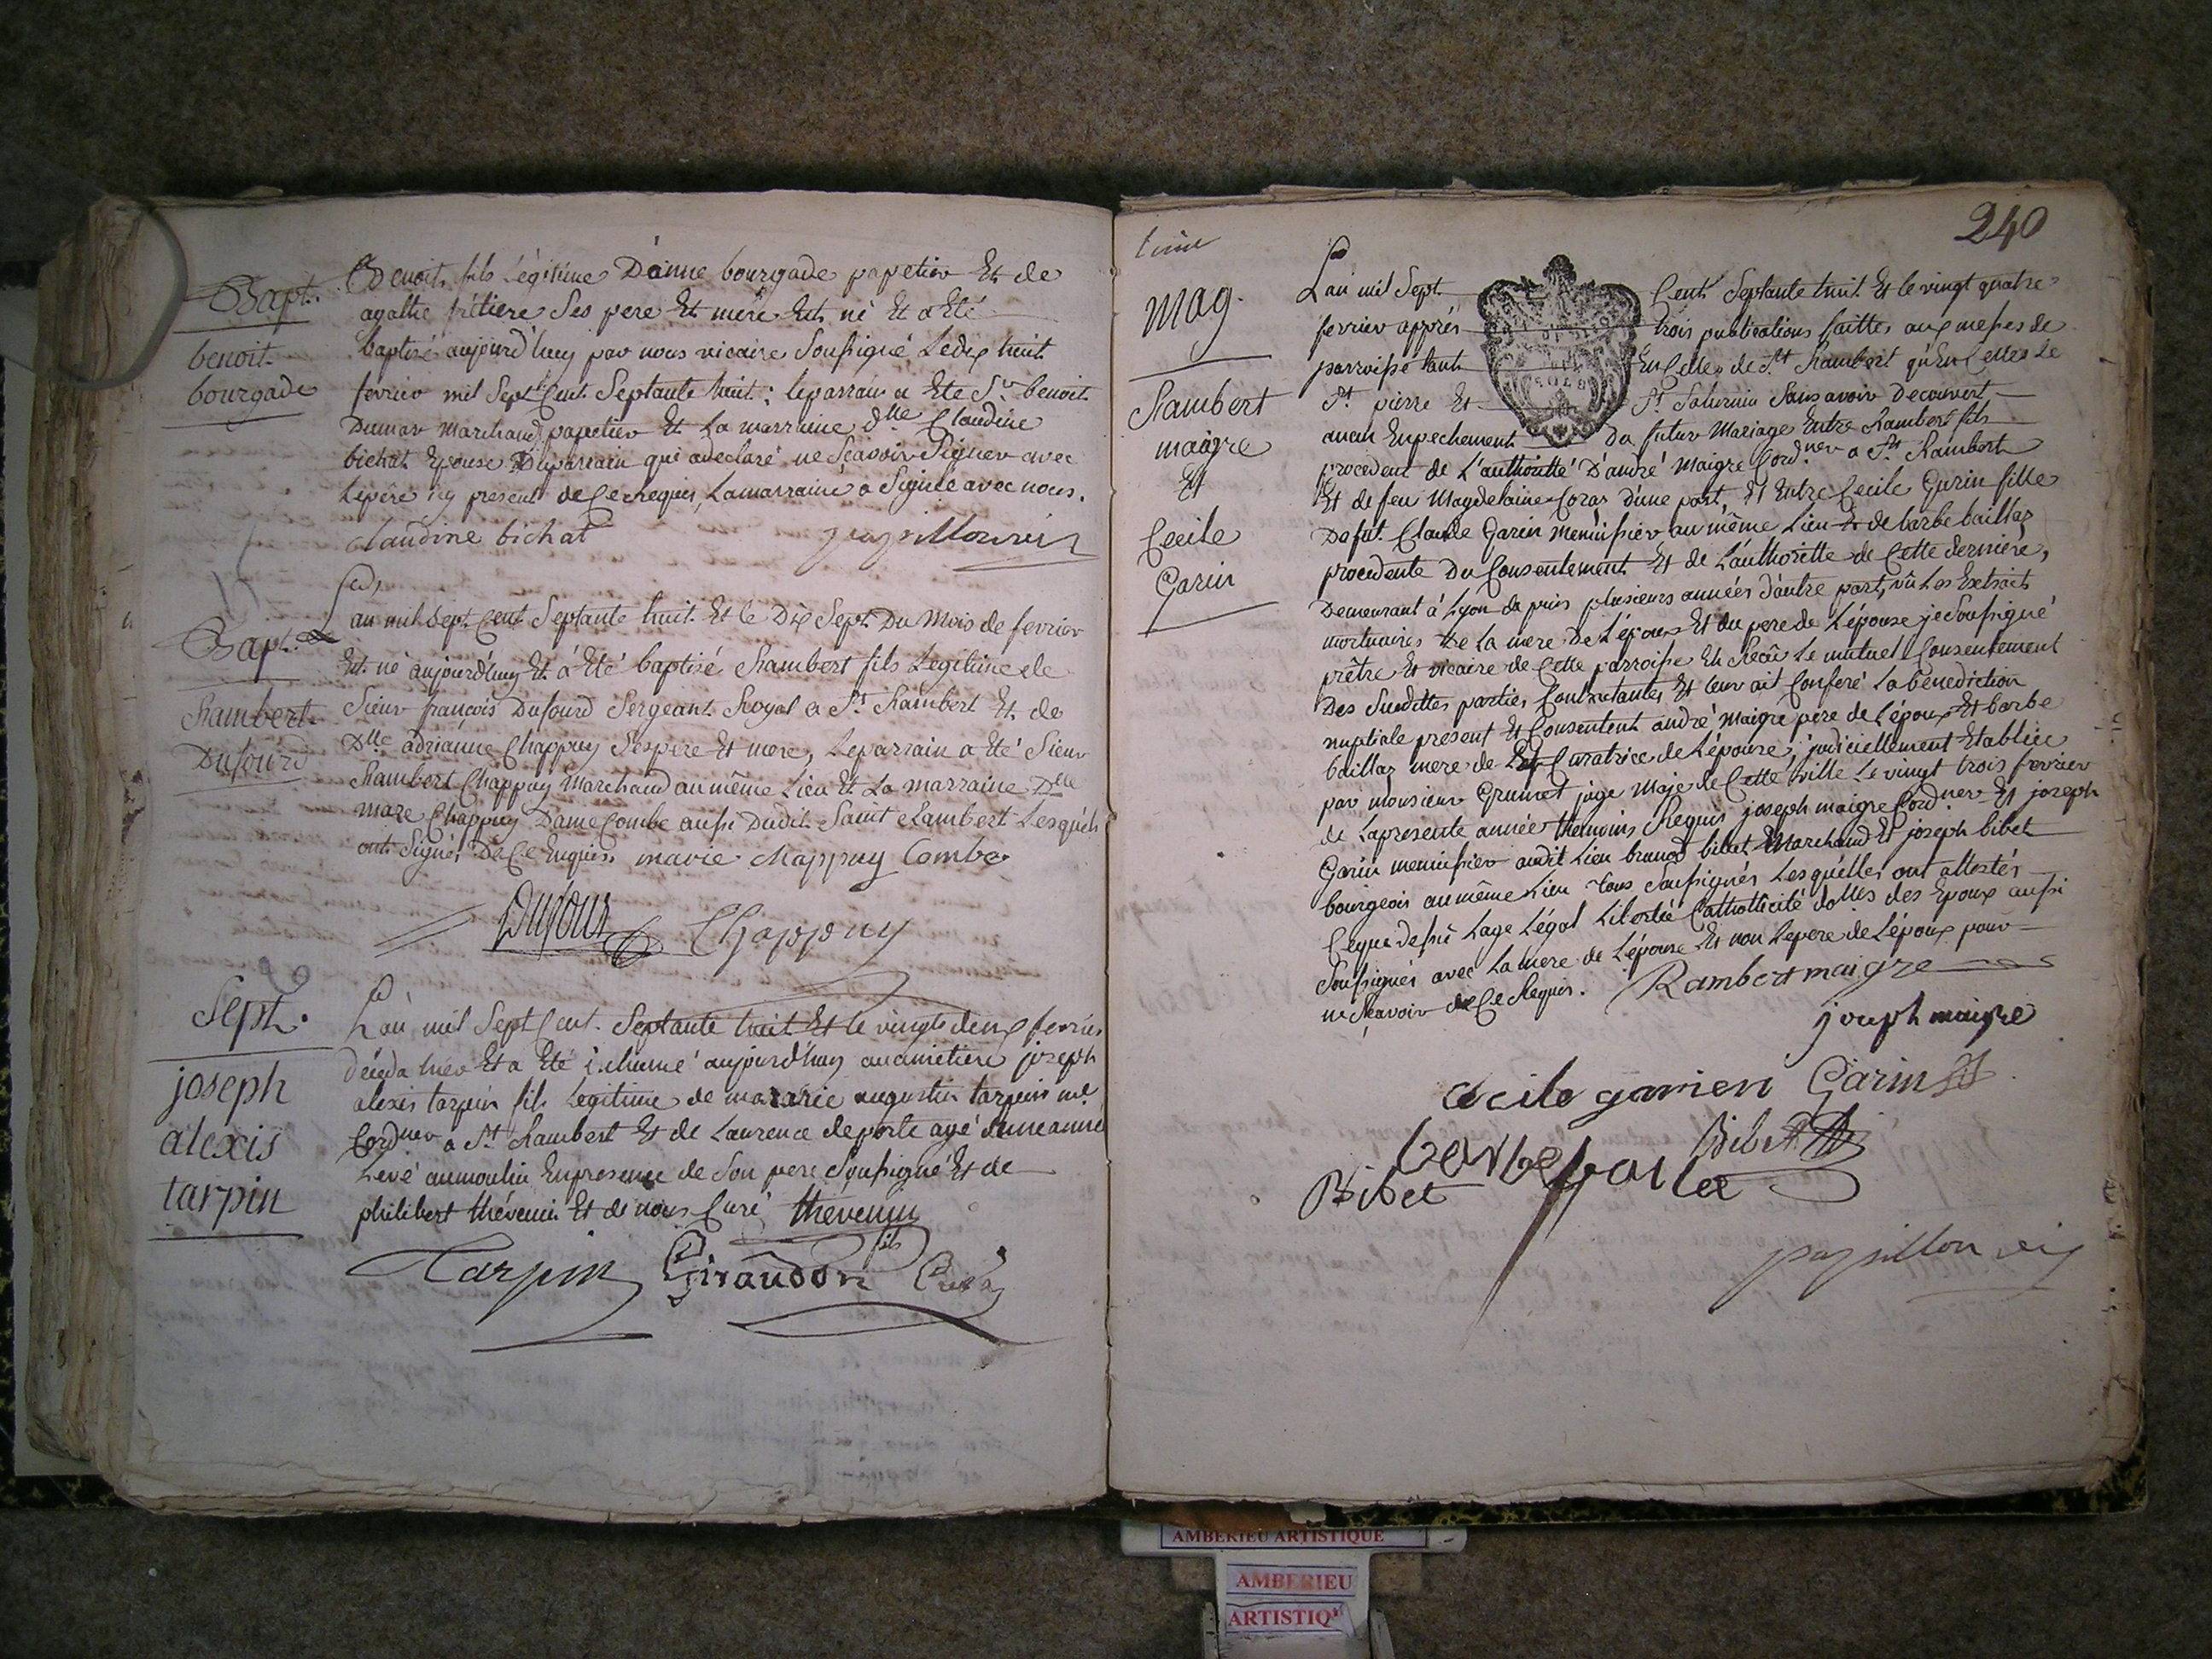 Bapt.
benoit
bourgade
Benoit fils Légitime D'anne bourgade papetier Et de
agathe frétiere Ses pere Et mere Est né Et a Eté
baptisé aujourd'huy par nous vicaire Soussigné Le dix huit
fevrier mil Sept Cent Septante huit: le parrain a Ete Sr. benoit
Dumar marchand papetier Et La marraine dlle Claudine
bichat Epouse Du parrain qui a declaré ne Scavoir Signer avec
Le père icy present de Ce requis, La marraine a Signée avec nous.
claudine bichat papillon vic
Bapt.
Rambert
Dufourd
L'an mil Sept Cent Septante huit Et le Dix Sept Du Mois de fevrier
Est né aujourd'huy Et a Eté baptisé Rambert fils Legitime de
Sieur françois Dufourd Sergeant Royal a St Rambert Et de
Dlle adrianne Chappuy Ses pere Et mere, Le parrain a Eté Sieur
Rambert Chappuy Marchand au même Lieu Et La marraine Dlle
marie Chappuy Dame Combe aussi Dudit Saint Rambert Lesquels
ont Signés De Ce Enquis. marie chappuy Combe
Dufour Chappuy
Seph.
joseph
alexis
tarpin
L'an mil Sept Cent Septante huit Et le vingt deux fevrier
décéda hier Et a Eté inhumé aujourd'huy au cimetiere joseph
alexis tarpin fils Legitime de augustin tarpin me
Cordner a St Rambert Et de Laurence deporte agé d'une année
Levé au moulin En presence de Son pere Soussigné Et de
philibert thévenin Et de nous Curé thevenin
fils
Tarpin Giraudon Curé
240
mag.
Rambert
maigre
Et
Cecile
Garin
L'an mil Sept Cent Septante huit Et le vingt quatre
fevrier apprés trois publications faittes aux messes de
parroisse tant En Celle de St Rambert qu'En Celles de
St pierre Et St Saturnin Sans avoir Decouvert
aucun Enpechement Du futur Mariage Entre Rambert fils
procedant de L'authoritté D'andré Maigre Cordner a St Rambert
Et de feu Magdelaine Coraz d'une part, Et Entre Cecile Garin fille
De fut Claude Garin Menuisier au même Lieu Et de barbe baillas
procedente Du Consentement Et de L'authoritte de Cette derniere,
Demeurant à Lyon depuis plusieurs années d'autre part, vû Les Extraits
mortuaires De La mere De L'époux Et du pere de L'épouse je Soussigné
prêtre Et vicaire de Cette parroisse Et Recû Le mutuel Consentement
Des Susdittes parties Contractantes Et leur ait Conferé La benediction
nuptiale present Et Consentent andré maigre pere de l'époux Et barbe
baillas mere de Et Curatrice de L'épouse, judiciellement Etabliee
par monsieur Grumet juge maje de Cette ville Le vingt trois fevrier
de La presente année themoins Requis joseph maigre Cordner Et joseph
Garin menuisier audit Lieu bibet Marchand Et joseph bibet
bourgeois au même Lieu tous Soussignés Lesquelles ont attestés
Ce que dessus L'age Légal Libertée Catholicité des Epoux aussi
Soussignés avec La mere de L'épouse Et non Le pere de L'époux pour
ne Scavoir de Ce Requis. Rambert maigre
joseph maigre
cecile garien Garin
barbe bailla Bibet
Bibet
papillon vic
AMBERIEU ARTISTIQUE
AMBERIEU
ARTISTIQ